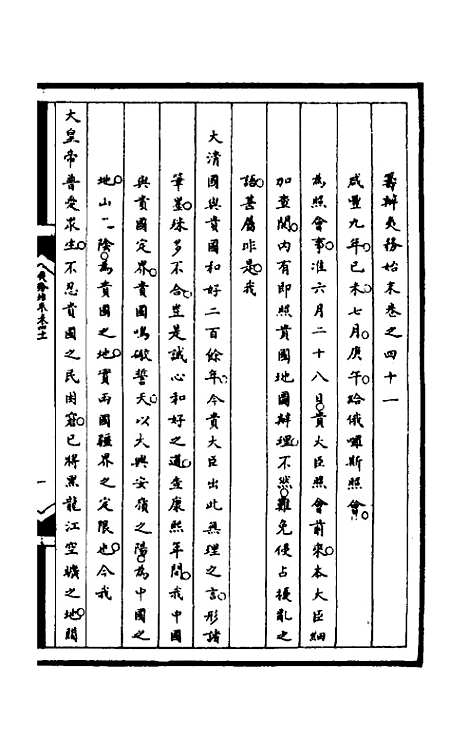 籌辦夷務始末卷之四十一
咸豐九年己未七月庚午給俄囉斯照會
為照會事准六月二十八日貴大臣照會前來本大臣細
加查閱內有即照貴國地圖辦理不然難免侵占擾亂之
語甚屬非是我
大清國與貴國和好二百餘年今貴大臣出此無理之言形諸
筆墨殊多不合豈是誠心和好之道查康熙年間我中國
與貴國定界貴國鳴礮誓天以大興安嶺之陽為中國之
地山之陰為貴國之地實兩國疆界之定限也今我
大皇帝普愛衆生不忍貴國之民困窘已將黑龍江空曠之地閒